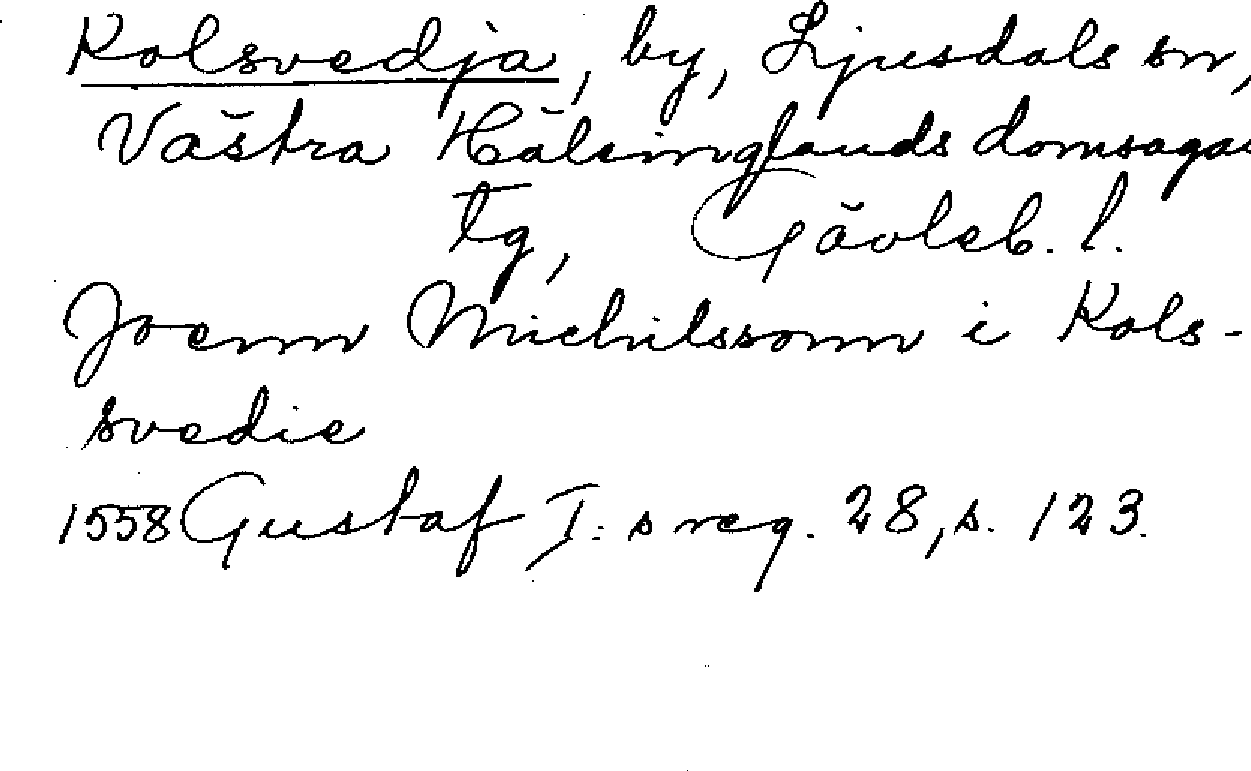 Kolsvedja, by, Ljusdals sn,
Västra Hälsinglands domsagas
tg, Gävleb. l.
Joenn Michilssonn i Kols-
svedie
1558 Gustaf I:s reg. 28, s. 123.